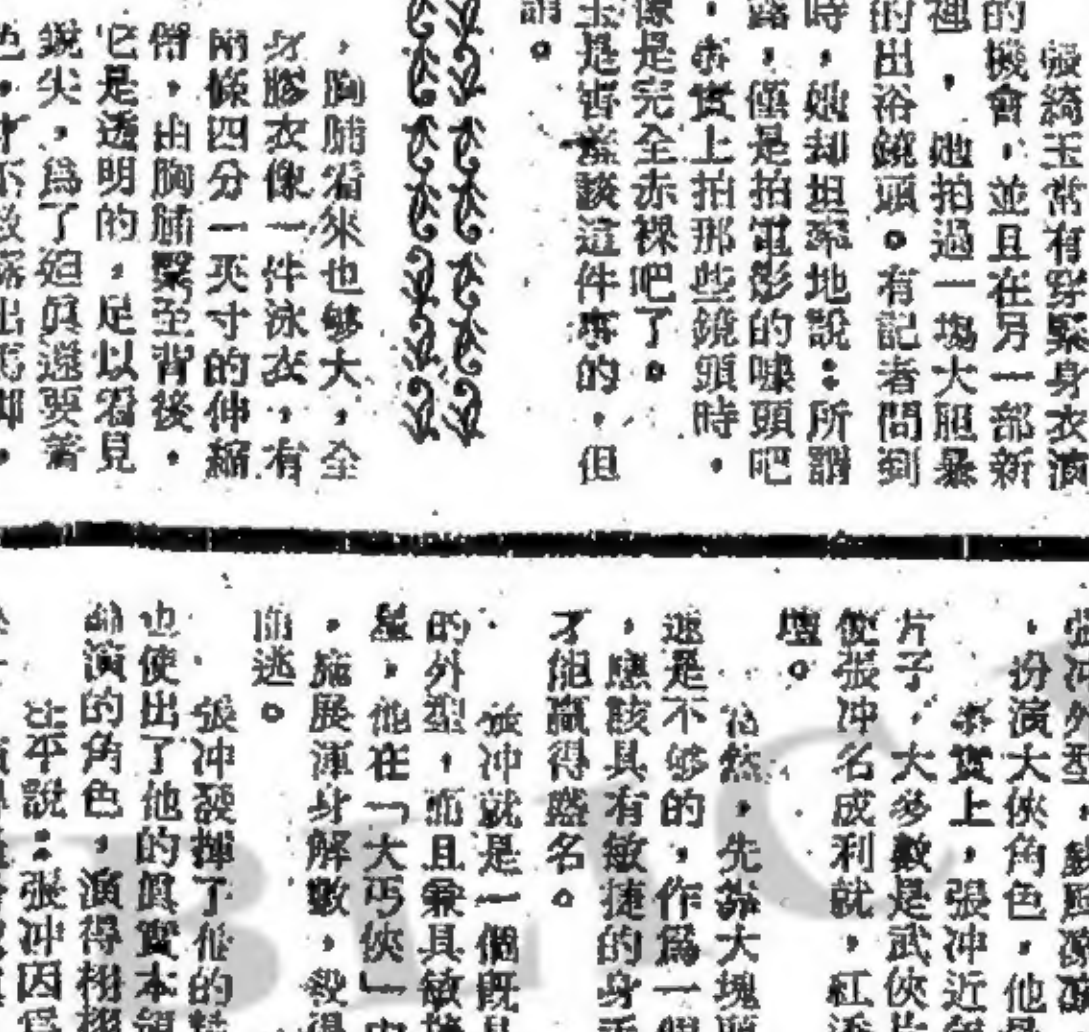 張綺玉常有穿緊身衣演
的機會，並且在另一部新
裡，她拍過一塲大胆暴
的出浴鏡頭。有記者問到
時，她却坦率地說：所謂
露，僅是拍電影的噱頭吧
，事實上拍那些鏡頭時，
像是完全赤裸吧了。
玉是害羞談這件事的，但
謂。
，胸脯看來也够大，全
身膠衣像一件泳衣，有
兩條四分一英寸的伸縮
帶，由胸脯緊至背後，
它是透明的，足以看見
銳尖，爲了廹眞還要着
份演大俠角色，他
事實上，張冲近
片子，大多數是武俠片
使張冲名成利就，紅
壇。
當然，先靠大塊
還是不够的，作爲一個
，應該具有敏捷的身手
才能贏得盛名。
張冲就是一個旣具
的外型，而且兼具敏捷
，他在「大丐俠」中
，施展渾身解數，殺得
而逃。
張冲發揮了他的
也使出了他的眞實本領
演的角色，演得栩栩
說：張冲因爲